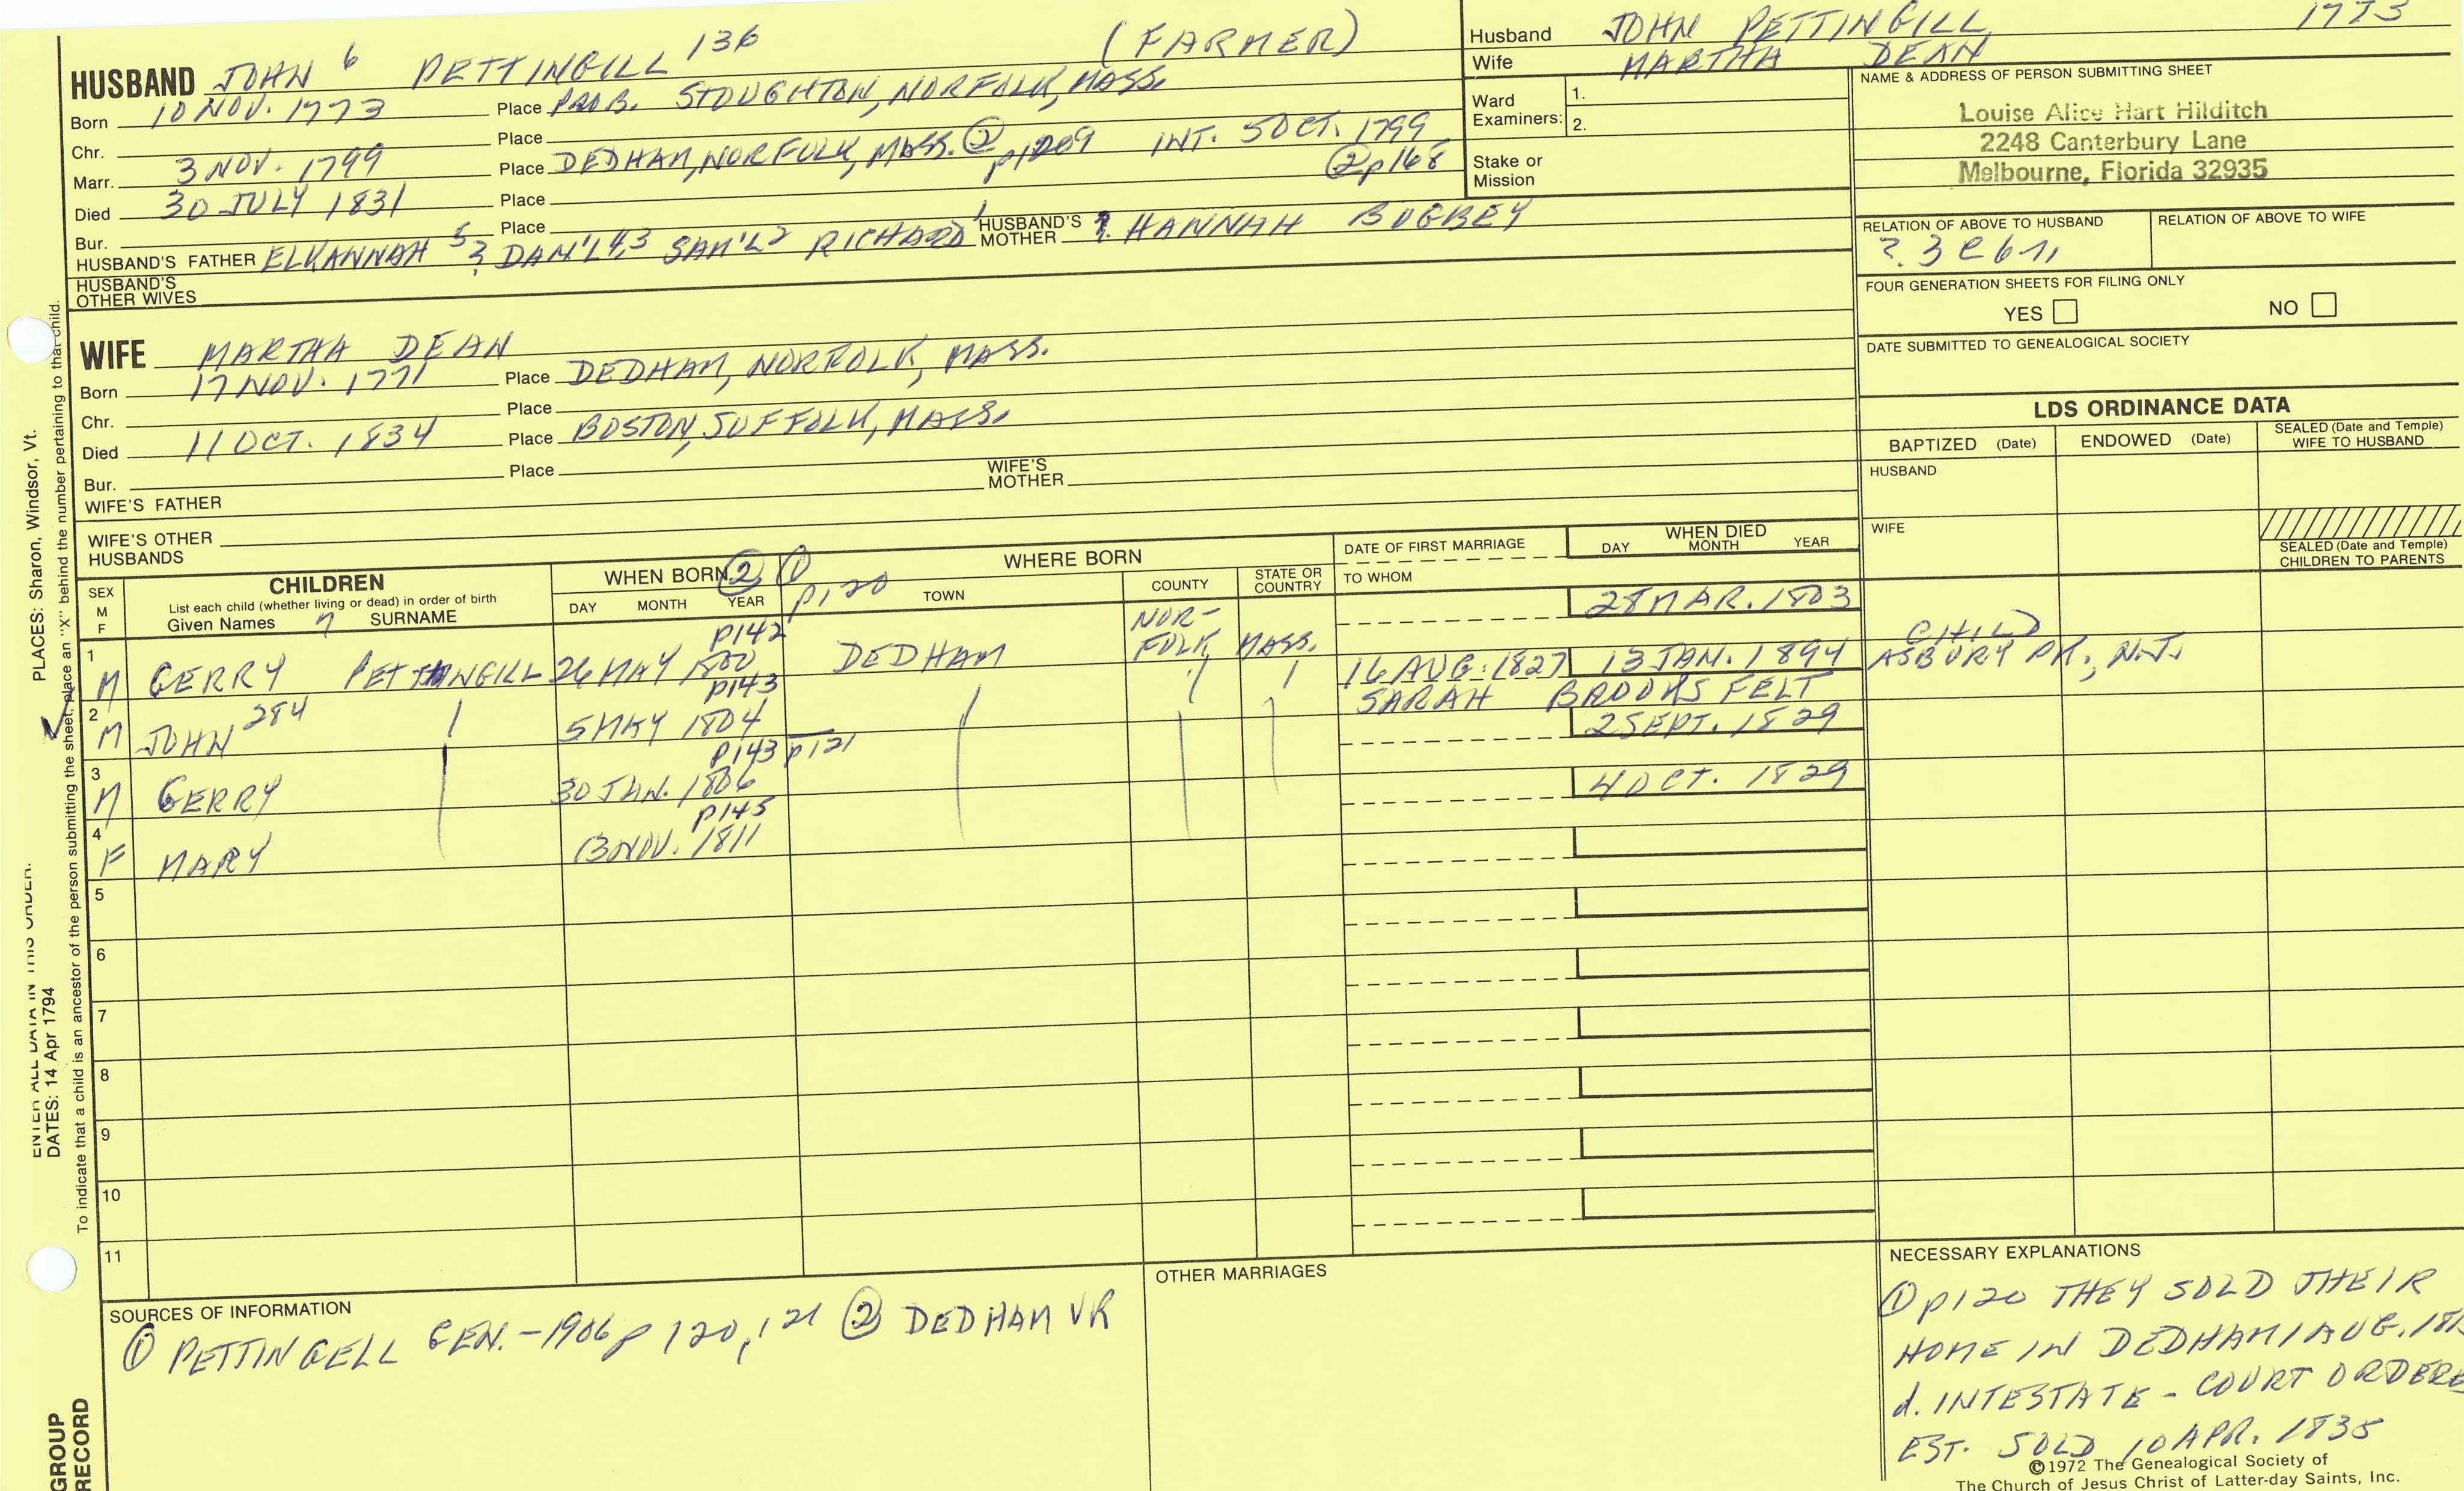 HUSBAND JOHN 6 PETTINGILL 136 (FARMER)
Born 10 NOV. 1773 Place PROB. STOUGHTON, NORFOLK, MASS.
Chr. Place
Marr. 3 NOV. 1799 Place DEDHAM, NORFOLK, MASS. ② INT. 5 OCT. 1799 ② p168
Died 30 JULY 1831 Place
Bur. Place
HUSBAND'S FATHER ELKANNAH 5, DAN'L 4,3 SAM'L 2 RICHARD 1 HUSBAND'S MOTHER HANNAH BUGBEY
HUSBAND'S OTHER WIVES
Husband JOHN PETTINGILL 1773
Wife MARTHA DEAN
Ward Examiners: 1.
2.
Stake or Mission
NAME & ADDRESS OF PERSON SUBMITTING SHEET
Louise Alice Hart Hilditch
2248 Canterbury Lane
Melbourne, Florida 32935
RELATION OF ABOVE TO HUSBAND RELATION OF ABOVE TO WIFE
FOUR GENERATION SHEETS FOR FILING ONLY
YES NO
DATE SUBMITTED TO GENEALOGICAL SOCIETY
WIFE MARTHA DEAN
Born 17 NOV. 1771 Place DEDHAM, NORFOLK, MASS.
Chr. Place
Died 11 OCT. 1834 Place BOSTON, SUFFOLK, MASS.
Bur. Place
WIFE'S FATHER WIFE'S MOTHER
WIFE'S OTHER HUSBANDS
LDS ORDINANCE DATA
BAPTIZED (Date) ENDOWED (Date) SEALED (Date and Temple) WIFE TO HUSBAND
HUSBAND
WIFE
SEALED (Date and Temple) CHILDREN TO PARENTS
SEX M F CHILDREN WHEN BORN ② ① p120 WHERE BORN DATE OF FIRST MARRIAGE WHEN DIED
List each child (whether living or dead) in order of birth
Given Names 7 SURNAME DAY MONTH YEAR TOWN COUNTY STATE OR COUNTRY TO WHOM DAY MONTH YEAR
1 M GERRY PETTINGILL 26 MAY 1800 p142 DEDHAM NOR-FOLK MASS. 28 MAR. 1803 CHILD
2 M JOHN 284 5 MAY 1804 p143 16 AUG. 1827 13 JAN. 1894 ASBURY PK., N.J.
SARAH BROOKS FELT
3 M GERRY 30 JAN. 1806 p143 p121 2 SEPT. 1829
4 F MARY 13 NOV. 1811 p145 4 OCT. 1829
5
6
7
8
9
10
11
SOURCES OF INFORMATION
① PETTINGELL GEN. - 1906 p 120, 121 ② DEDHAM VR
OTHER MARRIAGES
NECESSARY EXPLANATIONS
① p120 THEY SOLD THEIR
HOME IN DEDHAM 1 AUG.
d. INTESTATE - COURT ORDERE
EST. SOLD 10 APR. 1835
©1972 The Genealogical Society of
The Church of Jesus Christ of Latter-day Saints, Inc.
ENTER ALL DATA IN THIS ORDER.
DATES: 14 Apr 1794
PLACES: Sharon, Windsor, Vt.
To indicate that a child is an ancestor of the person submitting the sheet, place an "X" behind the number pertaining to that child.
GROUP
RECORD